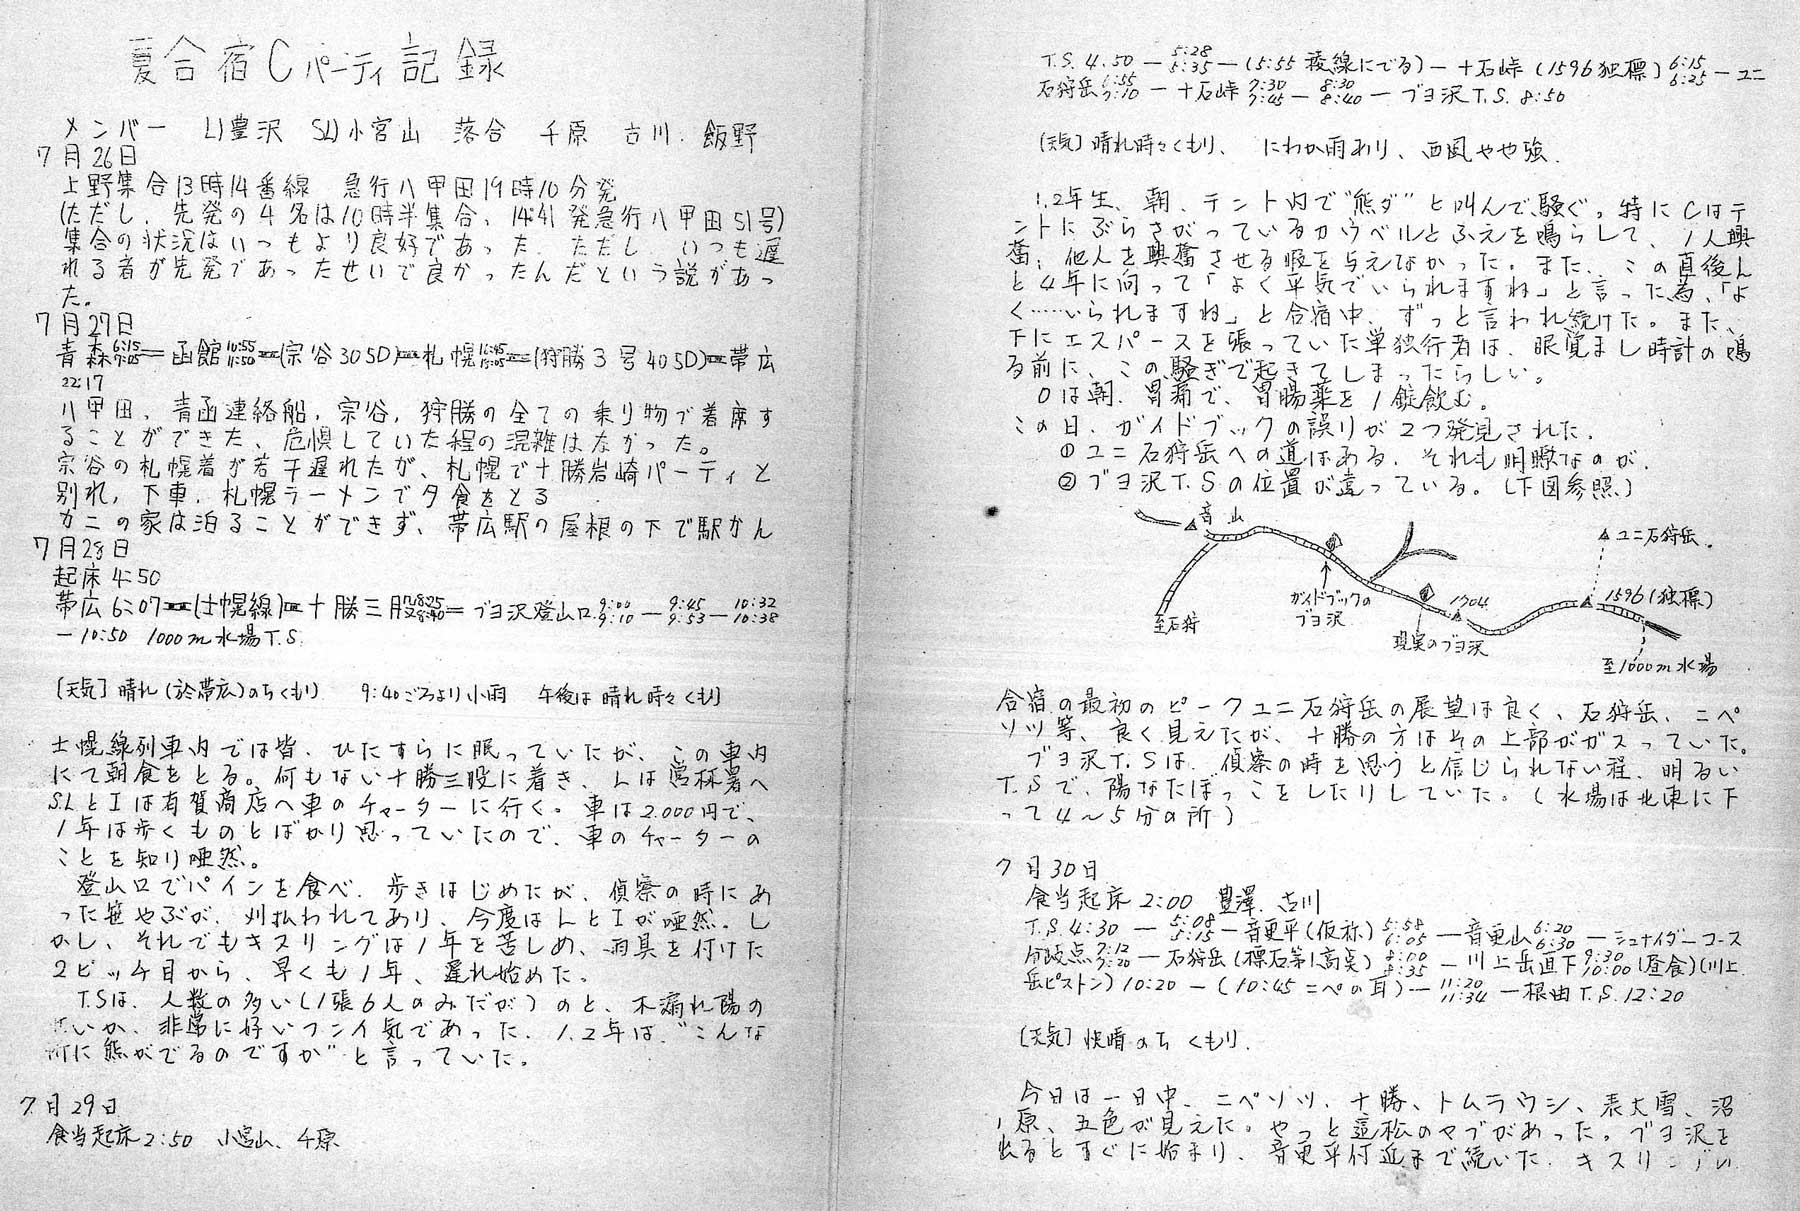 夏合宿Cパーティ記録
メンバー L)豊沢 SL)小宮山 落合 千原 古川 飯野
7月26日
上野集合13時14番線 急行八甲田19時10分発
(ただし、先発の4名は10時半集合、14:41発急行八甲田51号)
集合の状況はいつもより良好であった。ただし いつも遅
れる者が先発であったせいで良かったんだという説があっ
た。
7月27日
青森6:15 7:05=函館10:55 11:50=(宗谷305D)=札幌16:45 =(狩勝3号405D)=帯広
22:17
八甲田、青函連絡船、宗谷、狩勝の全ての乗り物で着席す
ることができた、危惧していた程の混雑はなかった。
宗谷の札幌着が若干遅れたが、札幌で十勝岩崎パーティと
別れ、下車、札幌ラーメンで夕食をとる
カニの家は泊ることができず、帯広駅の屋根の下で駅かん
7月28日
起床4:50
帯広6:07=(士幌線)=十勝三股8:25 8:40=ブヨ沢登山口9:00 9:10―9:45 9:53―10:32 10:38
―10:50 1000m水場T.S.
[天気]晴れ(於帯広)のちくもり 9:40ごろより小雨 午後は晴れ時々くもり
士幌線列車内では皆、ひたすらに眠っていたが、この車内
にて朝食をとる。何もない十勝三股に着き、Lは営林署へ
S.LとIは有賀商店へ車のチャーターに行く。車は2.000円で、
1年は歩くものとばかり思っていたので、車のチャーターの
ことを知り唖然。
登山口でパインを食べ、歩きはじめたが、偵察の時にあ
った笹やぶが、刈払われてあり、今度はLとIが唖然。し
かし、それでもキスリングは1年を苦しめ、雨具を付けた
2ピッチ目から、早くも1年、遅れ始めた。
T.Sは、人数の多い(1張6人のみだが)のと、木漏れ陽の
せいか、非常に好いフンイ気であった、1.2年は"こんな
所に熊がでるのですか"と言っていた。
7月29日
食当起床2:50 小宮山、千原
T.S.4:50―5:28 5:35―(5:55稜線にでる)―十石峠(1596独標)6:15 6:25―ユニ
石狩岳6:55 7:10―十石峠7:30 7:45―8:30 8:40―ブヨ沢T.S.8:50
[天気]晴れ時々くもり、にわか雨あり、西風やや強.
1.2年生、朝、テント内で"熊ダ"と叫んで騒ぐ。特にCはテ
ントにぶらさがっているカウベルとふえを鳴らして、1人興
奮、他人を興奮させる暇を与えなかった。また、この直後ん
と4年に向って「よく平気でいられますね」と言った為、「よ
く……いられますね」と合宿中、ずっと言われ続けた。また、
下にエスパースを張っていた単独行者は、眼覚まし時計の鳴
る前に、この騒ぎで起きてしまったらしい。
Oは朝、胃痛で、胃腸薬を1錠飲む。
この日、ガイドブックの誤りが2つ発見された.
①ユニ石狩岳への道はある、それも明瞭なのが.
②ブヨ沢T.Sの位置が違っている。(下図参照)
音山
ユニ石狩岳
ガイドブックの
ブヨ沢
1704
1596(独標)
至石狩
現実のブヨ沢
至1000m水場
合宿の最初のピークユニ石狩岳の展望は良く、石狩岳、ニペ
ソツ等、良く見えたが、十勝の方はその上部がガスっていた。
ブヨ沢T.Sは、偵察の時を思うと信じられない程、明るい
T.Sで、陽なたぼっこをしたりしていた。(水場は北東に下
って4〜5分の所)
7月30日
食当起床2:00 豊澤、古川
T.S.4:30―5:08 5:15―音更平(仮称)5:58 6:05―音更山6:20 6:30―シュナイダーコース
分岐点7:12 7:20―石狩岳(標石第1高点)8:00 8:35―川上岳直下9:30 10:00(昼食)(川上
岳ピストン)10:20―(10:45ニペの耳)―11:20 11:34―根曲T.S.12:20
[天気]快晴のちくもり.
今日は一日中、ニペソツ、十勝、トムラウシ、表大雪、沼
ノ原、五色が見えた。やっと這松のヤブがあった。ブヨ沢を
出るとすぐに始まり、音更平付近まで続いた、キスリングい